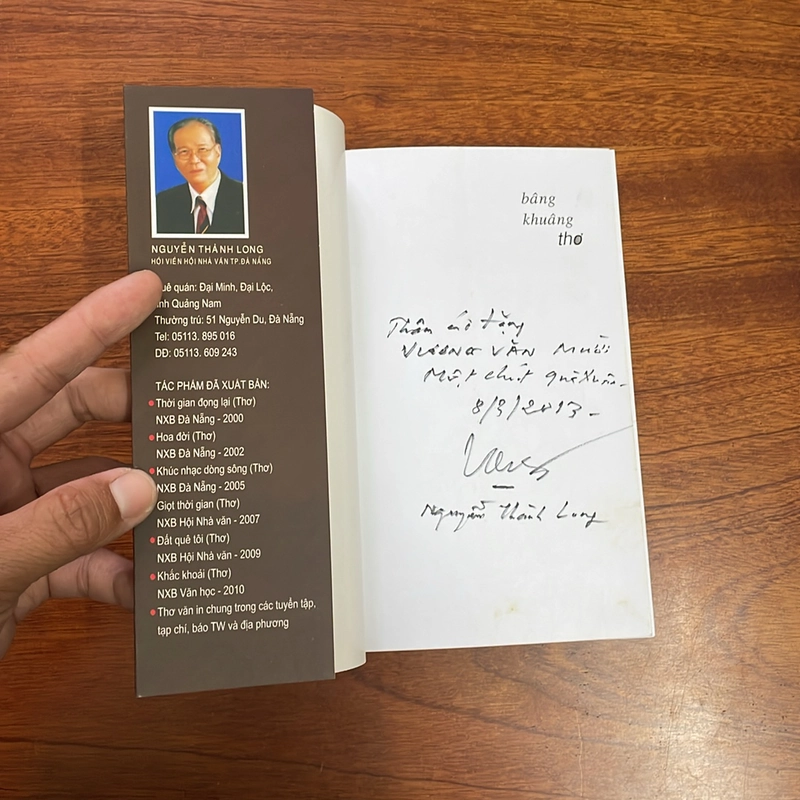 NGUYỄN THÀNH LONG
HỘI VIÊN HỘI NHÀ VĂN TP.ĐÀ NẴNG
uê quán: Đại Minh, Đại Lộc,
nh Quảng Nam
Thường trú: 51 Nguyễn Du, Đà Nẵng
Tel: 05113. 895 016
DĐ: 05113. 609 243
TÁC PHẨM ĐÃ XUẤT BẢN:
Thời gian đọng lại (Thơ)
NXB Đà Nẵng - 2000
Hoa đời (Thơ)
NXB Đà Nẵng - 2002
Khúc nhạc dòng sông (Thơ)
NXB Đà Nẵng - 2005
Giọt thời gian (Thơ)
NXB Hội Nhà văn - 2007
Đất quê tôi (Thơ)
NXB Hội Nhà văn - 2009
Khắc khoải (Thơ)
NXB Văn học - 2010
Thơ văn in chung trong các tuyển tập,
tạp chí, báo TW và địa phương
bâng
khuâng
thơ
Thân ái tặng
VƯƠNG VĂN Mười
Một chút quà Xuân
8/3/2013
Nguyễn Thành Long